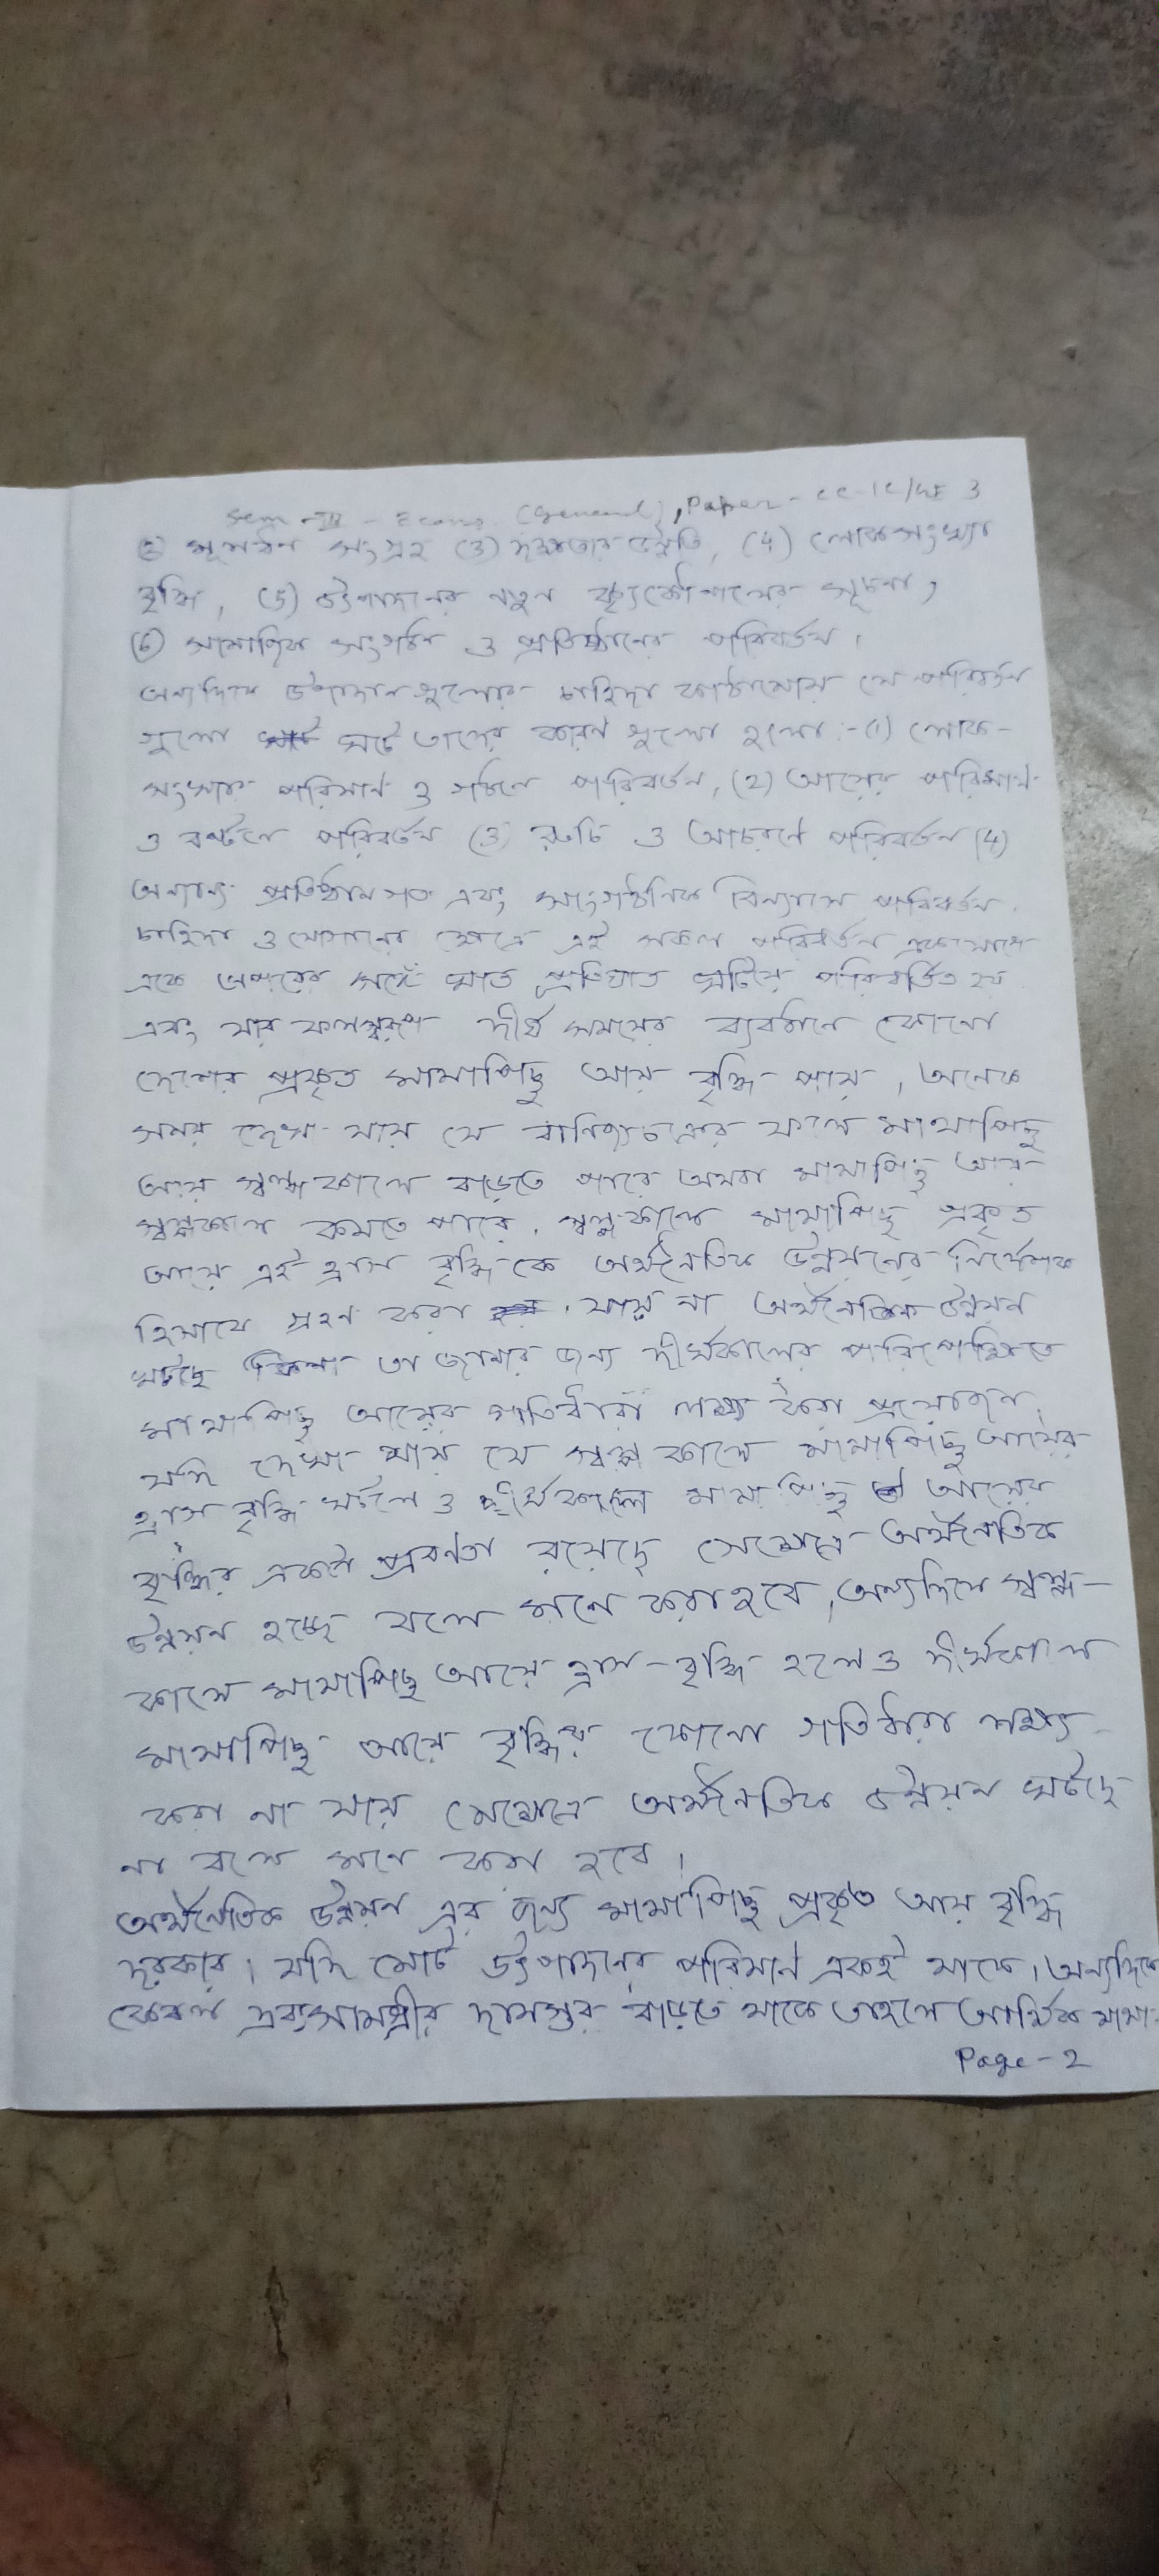 Sem - III - Econo. (General), Paper - CC-1C/GE 3
② মূলধন সংগ্রহ (3) দক্ষতার উন্নতি, (4) লোকসংখ্যা
বৃদ্ধি, (5) উৎপাদনের নতুন কৃৎকৌশলের সূচনা,
⑥ সামাজিক সংগঠন ও প্রতিষ্ঠানের পরিবর্তন।
অন্যদিকে উপাদান গুলোর চাহিদা কাঠামোয় যে পরিবর্তন
গুলো ঘটে তাদের কারণ গুলো হলো :- (1) লোক-
সংখ্যার পরিমাণ ও গঠনে পরিবর্তন, (2) আয়ের পরিমাণ
ও বণ্টনে পরিবর্তন (3) রুচি ও আচরণে পরিবর্তন (4)
অন্যান্য প্রতিষ্ঠানগত এবং সাংগঠনিক বিন্যাসে পরিবর্তন.
চাহিদা ও যোগানের ক্ষেত্রে এই সকল পরিবর্তন একসাথে
একে অপরের সঙ্গে ঘাত প্রতিঘাত ঘটিয়ে পরিবর্তিত হয়
এবং যার ফলস্বরূপ দীর্ঘ সময়ের ব্যবধানে কোনো
দেশের প্রকৃত মাথাপিছু আয় বৃদ্ধি পায়, অনেক
সময় দেখা যায় যে বানিজ্যচক্রের ফলে মাথাপিছু
আয় স্বল্পকালে বাড়তে পারে অথবা মাথাপিছু আয়
স্বল্পকালে কমতে পারে. স্বল্পকালে মাথাপিছু প্রকৃত
আয়ে এই হ্রাস বৃদ্ধিকে অর্থনৈতিক উন্নয়নের নির্দেশক
হিসাবে গ্রহণ করা যায় না অর্থনৈতিক উন্নয়ন
ঘটছে কিনা তা জানার জন্য দীর্ঘকালের পরিপেক্ষিতে
মাথাপিছু আয়ের গতিধারা লক্ষ্য করা প্রয়োজন.
যদি দেখা যায় যে স্বল্প কালে মাথাপিছু আয়ের
হ্রাস বৃদ্ধি ঘটলে ও দীর্ঘকালে মাথাপিছু আয়ের
বৃদ্ধির একটা প্রবণতা রয়েছে সেক্ষেত্রে অর্থনৈতিক
উন্নয়ন হচ্ছে বলে মনে করা হবে, অন্যদিকে স্বল্প-
কালে মাথাপিছু আয়ে হ্রাস-বৃদ্ধি হলেও দীর্ঘকালে
মাথাপিছু আয়ে বৃদ্ধির কোনো গতিধারা লক্ষ্য
করা না যায় সেক্ষেত্রে অর্থনৈতিক উন্নয়ন ঘটছে
না বলে মনে করা হবে।
অর্থনৈতিক উন্নয়ন এর জন্য মাথাপিছু প্রকৃত আয় বৃদ্ধি
দরকার। যদি মোট উৎপাদনের পরিমাণ একই থাকে। অন্যদিকে
কেবল দ্রব্যসামগ্রীর দামস্তর বাড়তে থাকে তাহলে আর্থিক মাথা-
Page - 2